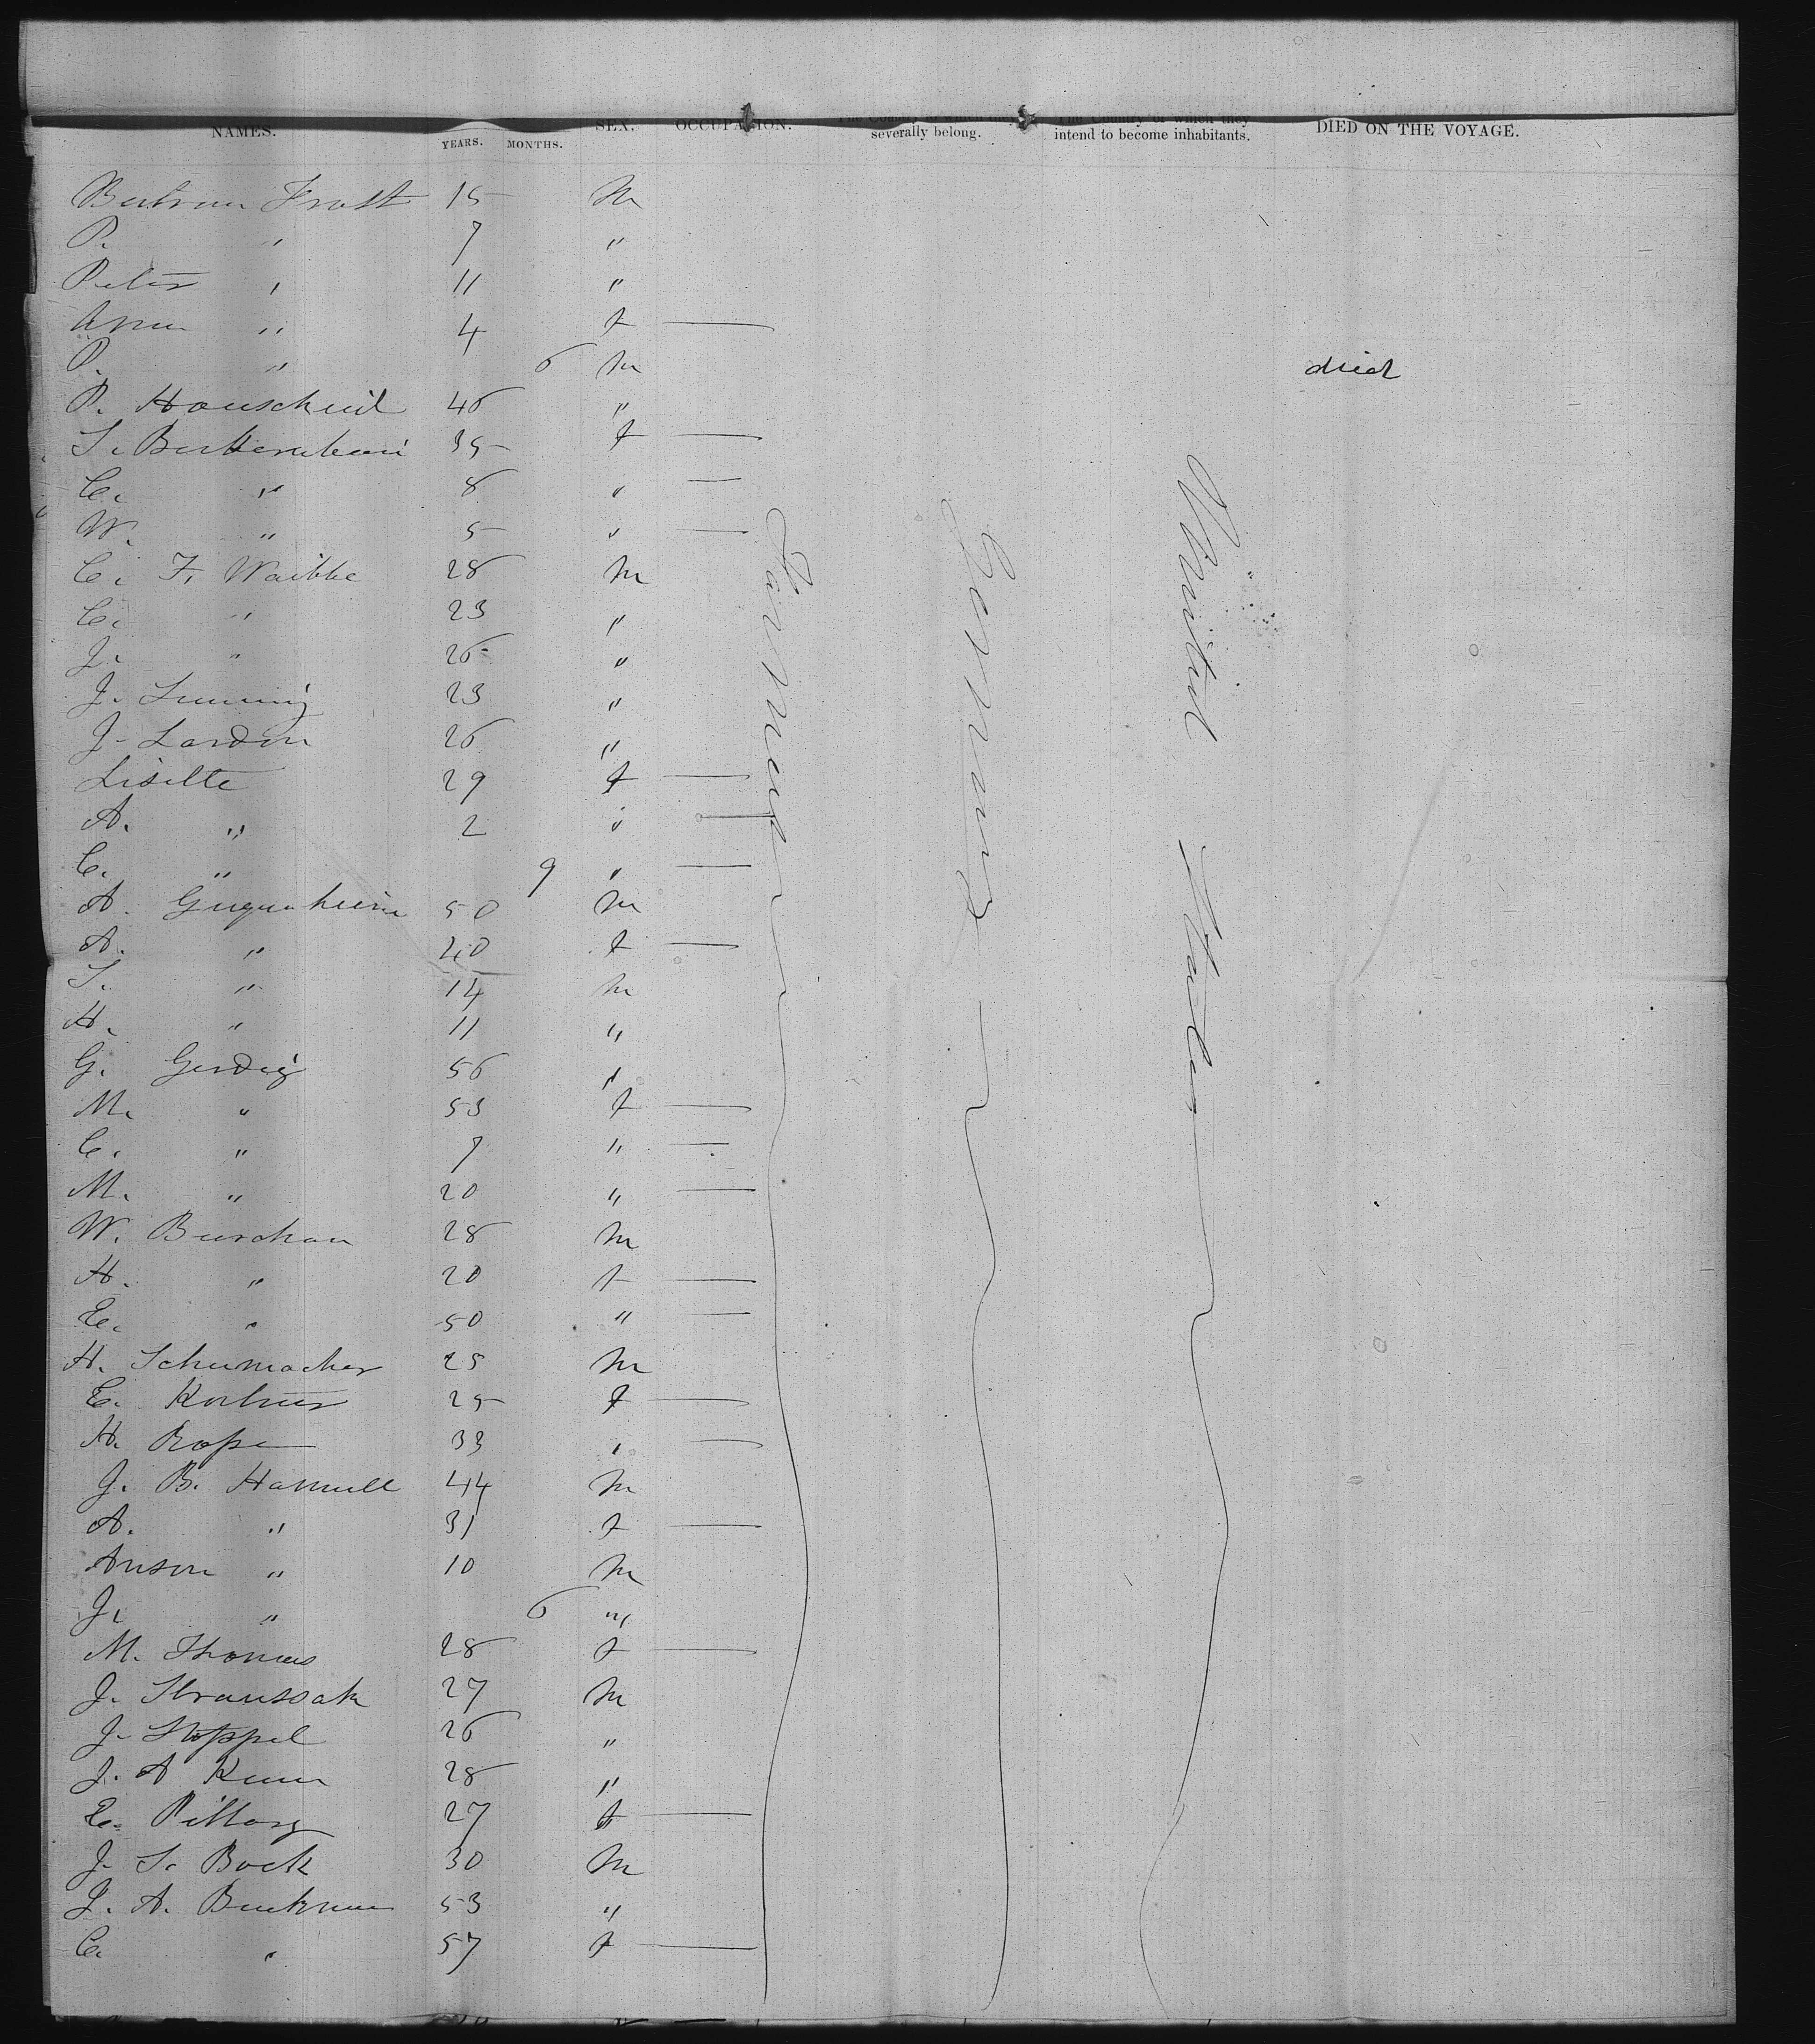 NAMES. YEARS. MONTHS. SEX. OCCUPATION. severally belong. The Country of which they intend to become inhabitants. DIED ON THE VOYAGE.
Bertram Frost 15 M
P. " 7 "
Peter " 11 "
Anna " 4 f —
P. " 6 M died
P. Hauscheid 46 "
S. 35 f —
C. " 8 " —
W. " 5 " —
C. F. Waibke 28 M
C. " 23 "
J. " 26 "
J. 23 "
J. Lardin 26 "
Lisette 29 f —
A. " 2 " —
C. " 9 " —
A. Gugenheim 50 M
A. " 40 f —
S. " 14 M
H. " 11 "
G. Gerdig 56 "
M. " 53 f —
C. " 7 " —
M. " 20 " —
W. Burchan 28 M
H. " 20 f —
E. " 50 " —
H. Schumacher 25 M
E. 25 f —
H. Rope 33 " —
J. B. Hamull 44 M
A. " 31 f —
Anson " 10 M
J. " 6 "
M. Thomas 28 f —
J. Straussak 27 M
J. Stoppel 26 "
J. A 28 "
E. 27 f —
J. S. Bock 30 M
J. A. 53 "
C. " 57 f —
Farmer
Germany
United States